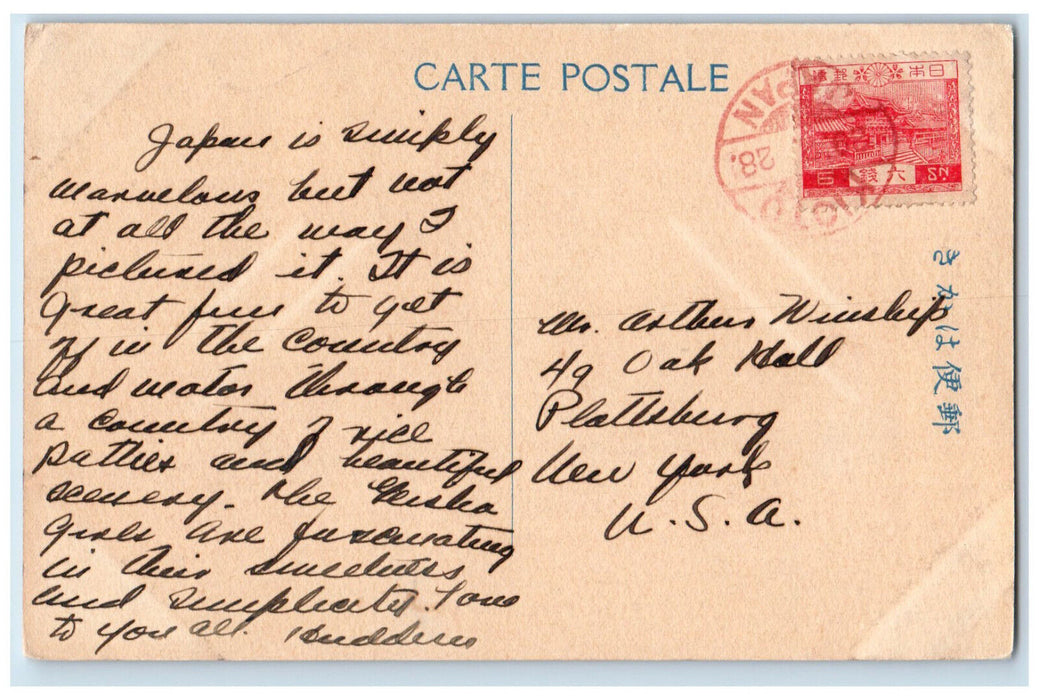 CARTE POSTALE
Japan is simply
marvelous but not
at all the way I
pictured it. It is
great fun to get
off in the country
and motor through
a country of rice
patties and beautiful
scenery. The Geisha
girls are fascinating
in their sweetness
and simplicity. Love
to you all.
Mr. Arthur Winship
49 Oak Hall
Plattsburg
New York
U. S. A.
日本郵便
六銭
6 SN.
JAPAN
28.
きがは便郵